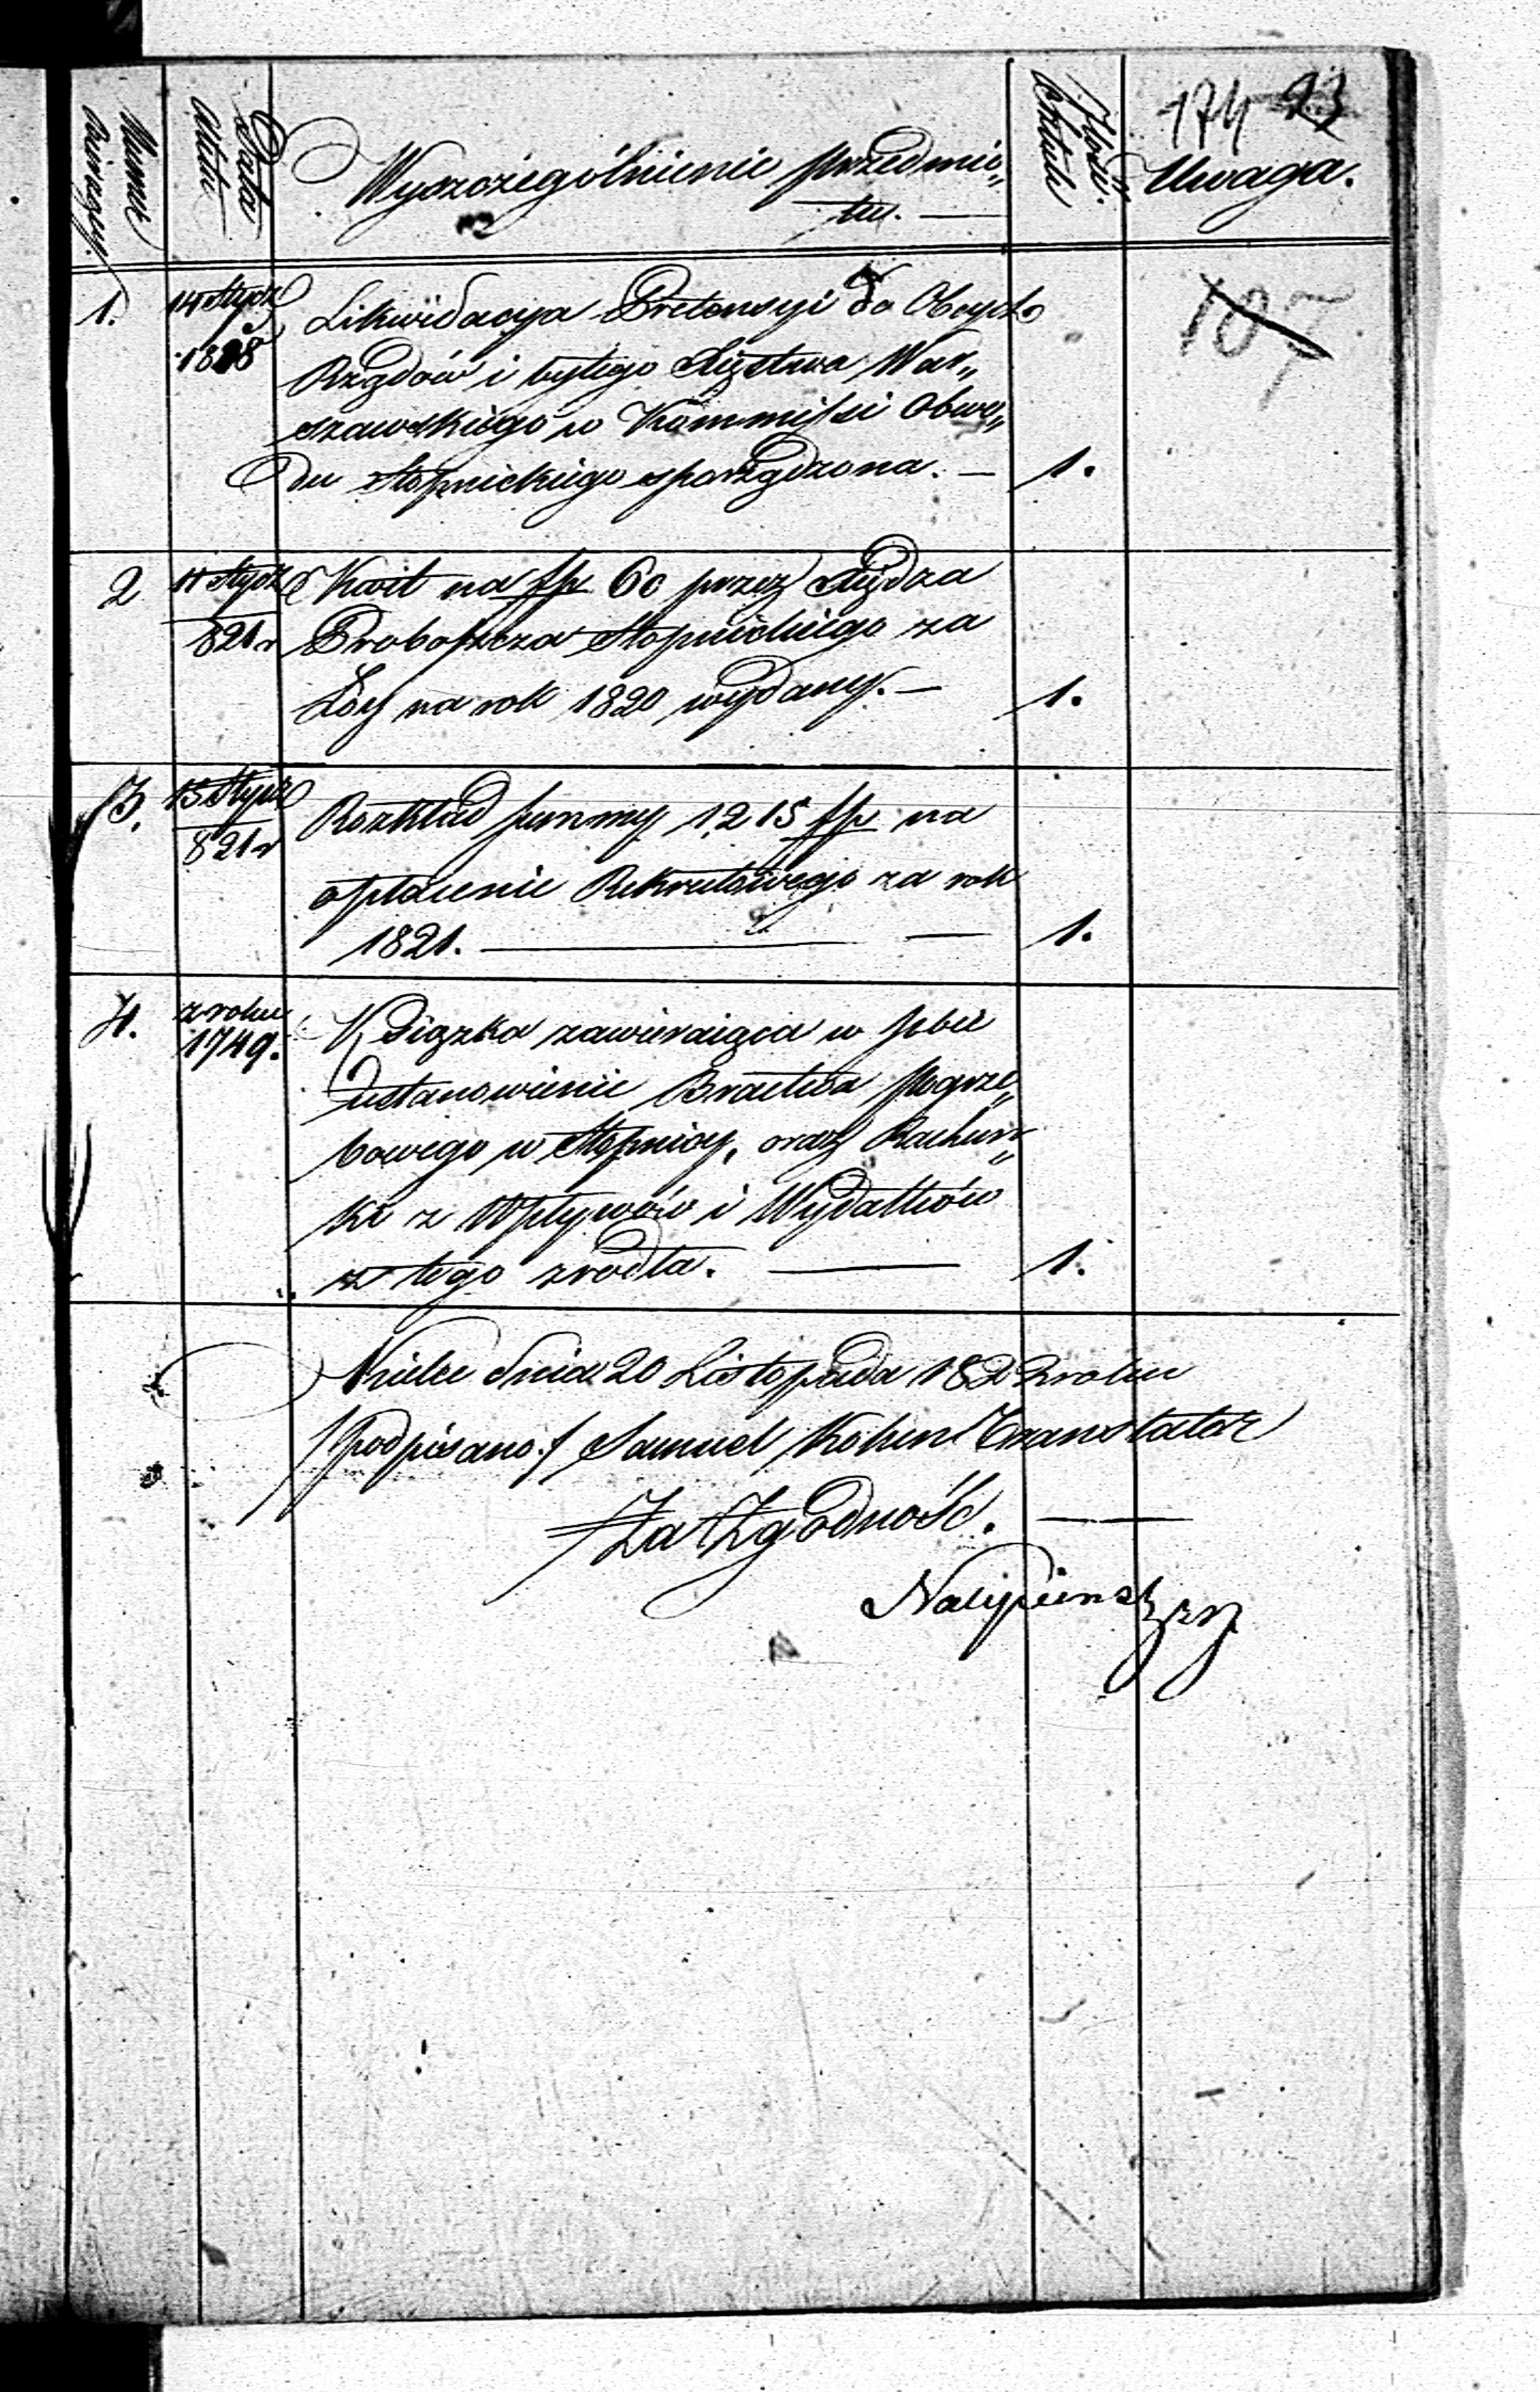 174 23
Numer bieżący.
Data aktu
Wyszczególnienie przedmio„
tu. —
Ilość sztuk
Uwaga.
1.
14 Stycz
1818
Likwidacyja Pretensyi do Obcych
Rządów i byłego Xięstwa War„
szawskiego w Kommissi Obwo„
du Stopnickiego sporządzona. — 1.
107
2
11 Stycz
821 r
Kwit na fp 60 przez Xiędza
Proboszcza Stopnickiego za
Łóy na rok 1820 wydany. — 1.
3.
15 Stycz
821 r
Rozkład summy 1215 fp na
opłacenie Rekrutowego za rok
1821. — 1.
4.
z roku
1749.
Xsiązka zawieraiąca w sobie
Ustanowienie Bractwa pogrze„
bowego w Stopnicy, oraz Rachun„
ki z Wpływów i Wydatków
z tego zrodła. — 1.
Kielce dnia 20 Listopada 1822 roku
/podpisano:/ Samuel Kohen Translator
Za Zgodność. —